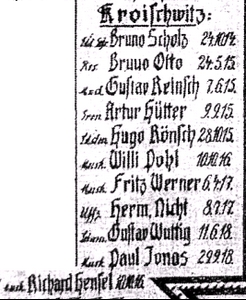 Kroischwitz:
Bruno Scholz 24.10.14.
Res. Bruno Otto 24.5.15.
Gustav Reinsch 7.6.15.
Artur Hütter 9.9.15.
Hugo Rönsch 28.10.15.
Musk. Willi Pohl 10.10.16.
Musk. Fritz Werner 6.4.17.
Uffz. Herm. Nicht 8.7.17.
Gustav Wuttig 11.6.18.
Musk. Paul Jonas 29.9.18.
Musk. Richard Hensel 10.10.16.